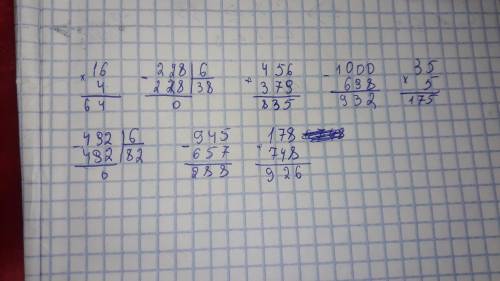 16 - 228 | 6 456 - 1000 35
× 4 228 | 38 + 379 698 × 5
64 0 835 932 175
- 492 | 6 - 945 178
492 | 82 657 + 748
0 288 926